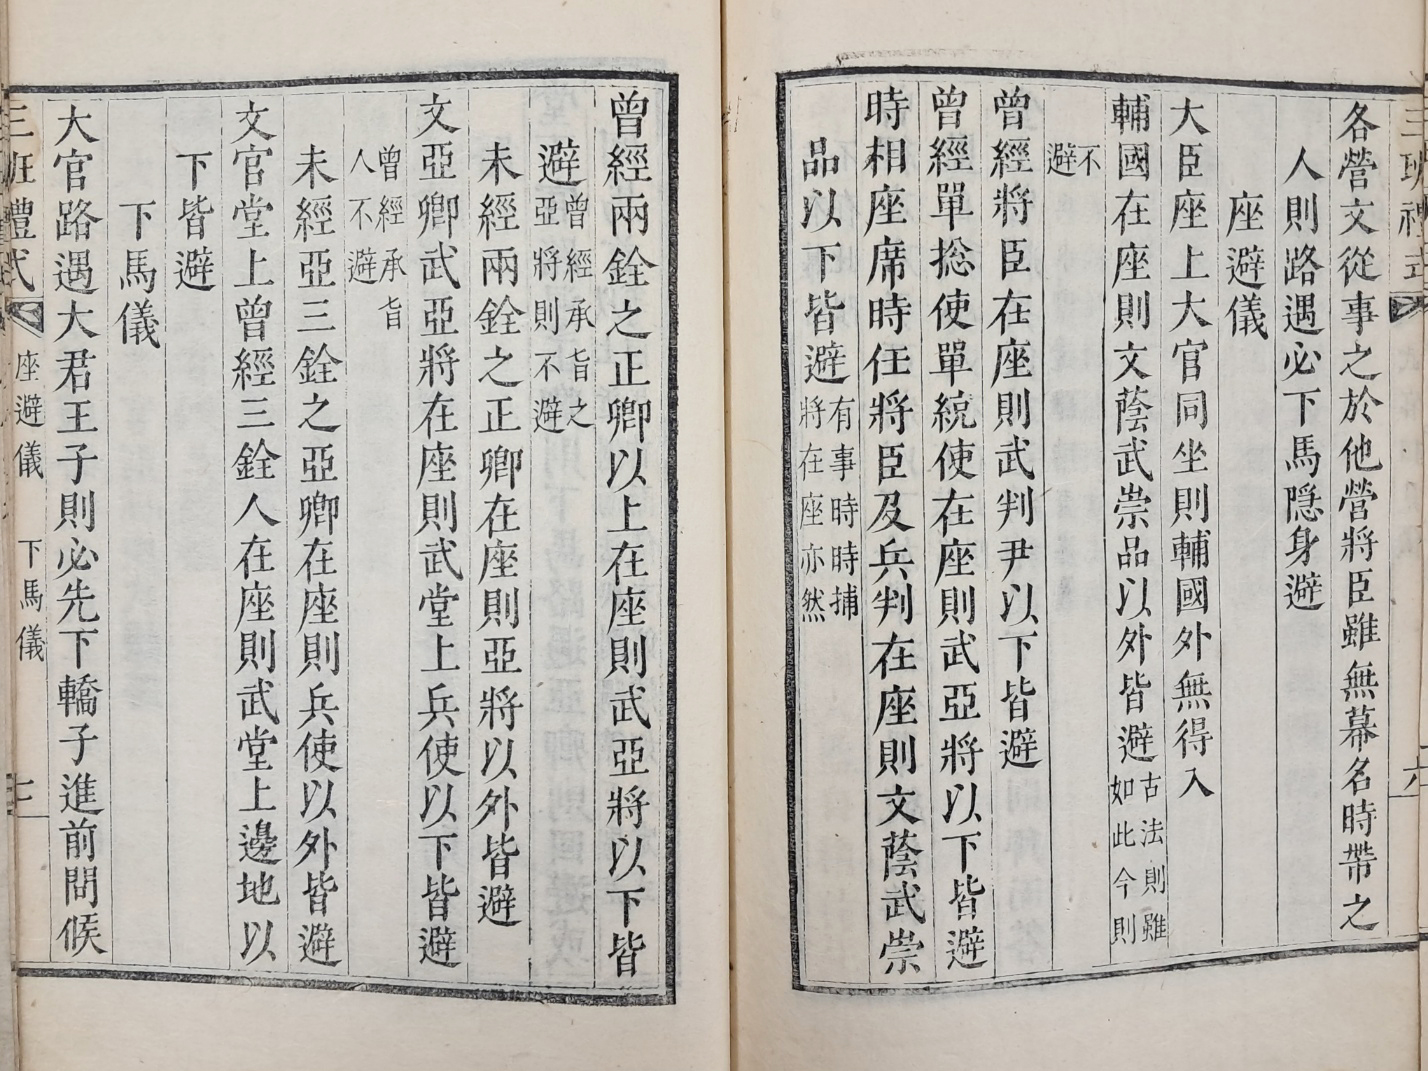 三班禮式
六
各營文從事之於他營將臣雖無幕名時帶之
人則路遇必下馬隐身避
座避儀
大臣座上大官同坐則輔國外無得入
輔國在座則文蔭武崇品以外皆避古法則雖如此今則
不避
曾經將臣在座則武判尹以下皆避
曾經單捴使單統使在座則武亞將以下皆避
時相座席時任將臣及兵判在座則文蔭武崇
品以下皆避有事時時捕將在座亦然
曾經兩銓之正卿以上在座則武亞將以下皆
避曾經承旨之亞將則不避
未經兩銓之正卿在座則亞將以外皆避
文亞卿武亞將在座則武堂上兵使以下皆避
曾經承旨人不避
未經亞三銓之亞卿在座則兵使以外皆避
文官堂上曾經三銓人在座則武堂上邊地以
下皆避
下馬儀
大官路遇大君王子則必先下轎子進前問候
三班禮式 座避儀 下馬儀